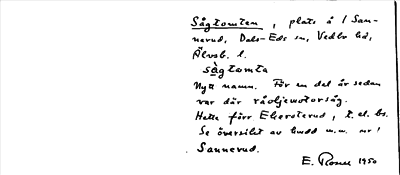 Sågtomten, plats å 1 San-
nerud, Dals-Eds sn, Vedbo hd,
Älvsb. l.
sågtomta
Nytt namn. För en del år sedan
var där råoljemotorsåg.
Hette förr, t. el. bs.
Se översikt av m.m. nr 1
Sannerud.
E. 1950